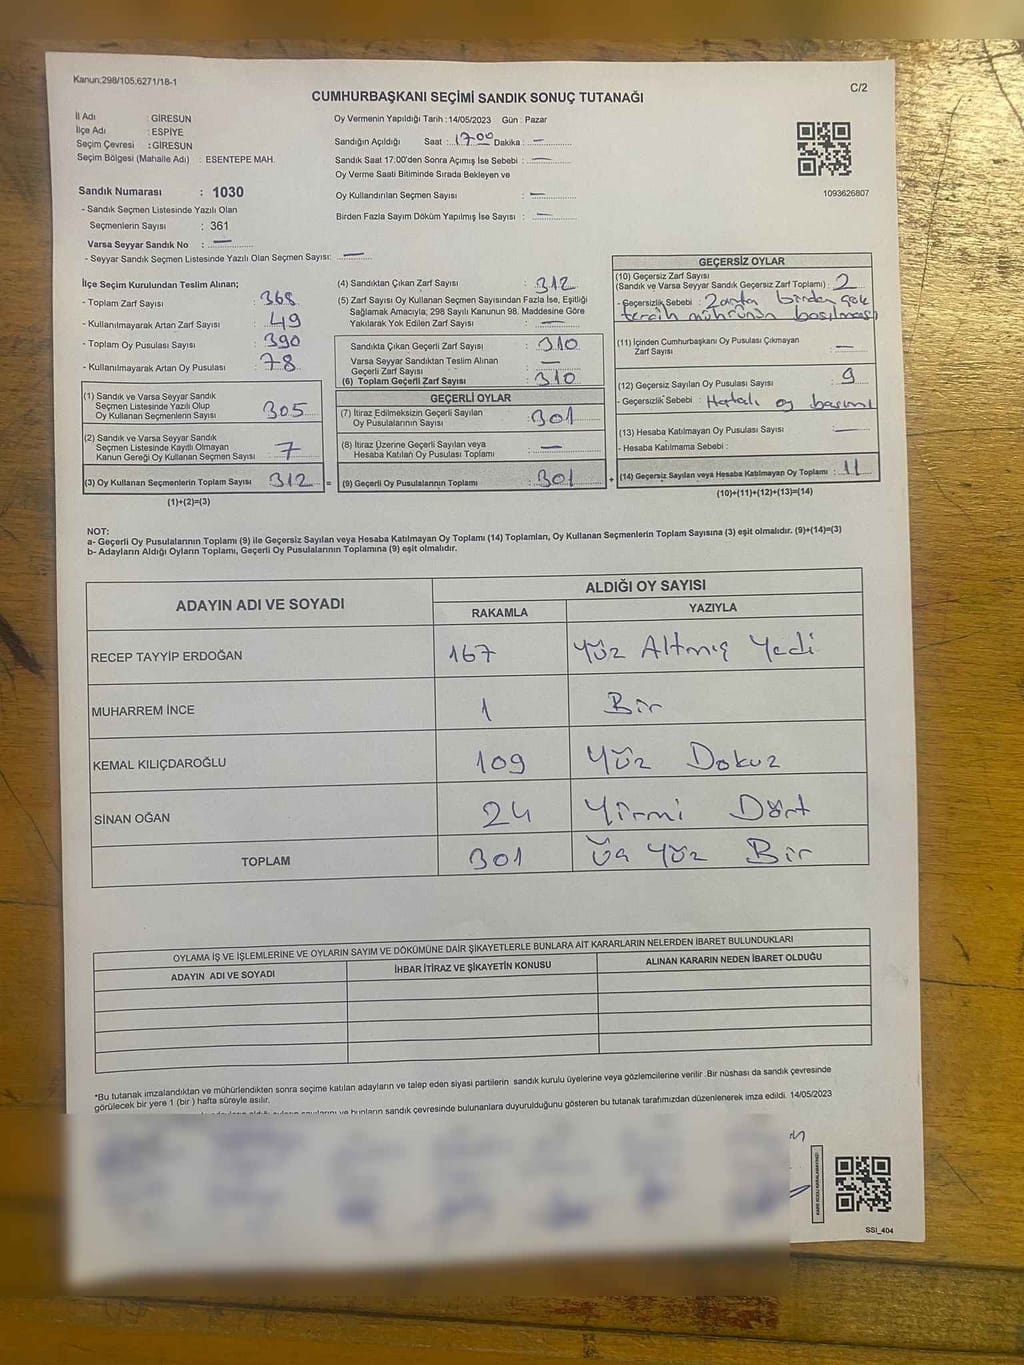 Kanun;298/105,6271/18-1
C/2
CUMHURBAŞKANI SEÇİMİ SANDIK SONUÇ TUTANAĞI
İl Adı : GİRESUN
İlçe Adı : ESPİYE
Seçim Çevresi : GİRESUN
Seçim Bölgesi (Mahalle Adı) : ESENTEPE MAH.
Sandık Numarası : 1030
- Sandık Seçmen Listesinde Yazılı Olan
Seçmenlerin Sayısı : 361
Varsa Seyyar Sandık No : —
- Seyyar Sandık Seçmen Listesinde Yazılı Olan Seçmen Sayısı: —
Oy Vermenin Yapıldığı Tarih : 14/05/2023 Gün : Pazar
Sandığın Açıldığı Saat : 17:00 Dakika : —
Sandık Saat 17:00'den Sonra Açımış İse Sebebi : —
Oy Verme Saati Bitiminde Sırada Bekleyen ve
Oy Kullandırılan Seçmen Sayısı : —
Birden Fazla Sayım Döküm Yapılmış İse Sayısı : —
1093626807
İlçe Seçim Kurulundan Teslim Alınan;
- Toplam Zarf Sayısı : 368
- Kullanılmayarak Artan Zarf Sayısı : 49
- Toplam Oy Pusulası Sayısı : 390
- Kullanılmayarak Artan Oy Pusulası : 78
(1) Sandık ve Varsa Seyyar Sandık
Seçmen Listesinde Yazılı Olup
Oy Kullanan Seçmenlerin Sayısı : 305
(2) Sandık ve Varsa Seyyar Sandık
Seçmen Listesinde Kayıtlı Olmayan
Kanun Gereği Oy Kullanan Seçmen Sayısı : 7
(3) Oy Kullanan Seçmenlerin Toplam Sayısı : 312 =
(1)+(2)=(3)
(4) Sandıktan Çıkan Zarf Sayısı : 312
(5) Zarf Sayısı Oy Kullanan Seçmen Sayısından Fazla İse, Eşitliği
Sağlamak Amacıyla; 298 Sayılı Kanunun 98. Maddesine Göre
Yakılarak Yok Edilen Zarf Sayısı : —
Sandıkta Çıkan Geçerli Zarf Sayısı : 310
Varsa Seyyar Sandıktan Teslim Alınan
Geçerli Zarf Sayısı : —
(6) Toplam Geçerli Zarf Sayısı : 310
GEÇERLİ OYLAR
(7) İtiraz Edilmeksizin Geçerli Sayılan
Oy Pusulalarının Sayısı : 301
(8) İtiraz Üzerine Geçerli Sayılan veya
Hesaba Katılan Oy Pusulası Toplamı : —
(9) Geçerli Oy Pusulalarının Toplamı : 301 +
GEÇERSİZ OYLAR
(10) Geçersiz Zarf Sayısı
(Sandık ve Varsa Seyyar Sandık Geçersiz Zarf Toplamı) : 2
- Geçersizlik Sebebi : 2 zarfta birden çok
tercih mührünün basılması
(11) İçinden Cumhurbaşkanı Oy Pusulası Çıkmayan
Zarf Sayısı : —
(12) Geçersiz Sayılan Oy Pusulası Sayısı : 9
- Geçersizlik Sebebi : Hatalı oy basımı
(13) Hesaba Katılmayan Oy Pusulası Sayısı : —
- Hesaba Katılmama Sebebi :
(14) Geçersiz Sayılan veya Hesaba Katılmayan Oy Toplamı : 11
(10)+(11)+(12)+(13)=(14)
NOT:
a- Geçerli Oy Pusulalarının Toplamı (9) ile Geçersiz Sayılan veya Hesaba Katılmayan Oy Toplamı (14) Toplamları, Oy Kullanan Seçmenlerin Toplam Sayısına (3) eşit olmalıdır. (9)+(14)=(3)
b- Adayların Aldığı Oyların Toplamı, Geçerli Oy Pusulalarının Toplamına (9) eşit olmalıdır.
ADAYIN ADI VE SOYADI
ALDIĞI OY SAYISI
RAKAMLA YAZIYLA
RECEP TAYYİP ERDOĞAN 167 Yüz Altmış Yedi
MUHARREM İNCE 1 Bir
KEMAL KILIÇDAROĞLU 109 Yüz Dokuz
SİNAN OĞAN 24 Yirmi Dört
TOPLAM 301 Üç Yüz Bir
OYLAMA İŞ VE İŞLEMLERİNE VE OYLARIN SAYIM VE DÖKÜMÜNE DAİR ŞİKAYETLERLE BUNLARA AİT KARARLARIN NELERDEN İBARET BULUNDUKLARI
ADAYIN ADI VE SOYADI İHBAR İTİRAZ VE ŞİKAYETİN KONUSU ALINAN KARARIN NEDEN İBARET OLDUĞU
*Bu tutanak imzalandıktan ve mühürlendikten sonra seçime katılan adayların ve talep eden siyasi partilerin sandık kurulu üyelerine veya gözlemcilerine verilir .Bir nüshası da sandık çevresinde
görülecek bir yere 1 (bir ) hafta süreyle asılır.
ve bunların sandık çevresinde bulunanlara duyurulduğunu gösteren bu tutanak tarafımızdan düzenlenerek imza edildi. 14/05/2023
KARE KODU KARALAMAYINIZ!
SSI_404